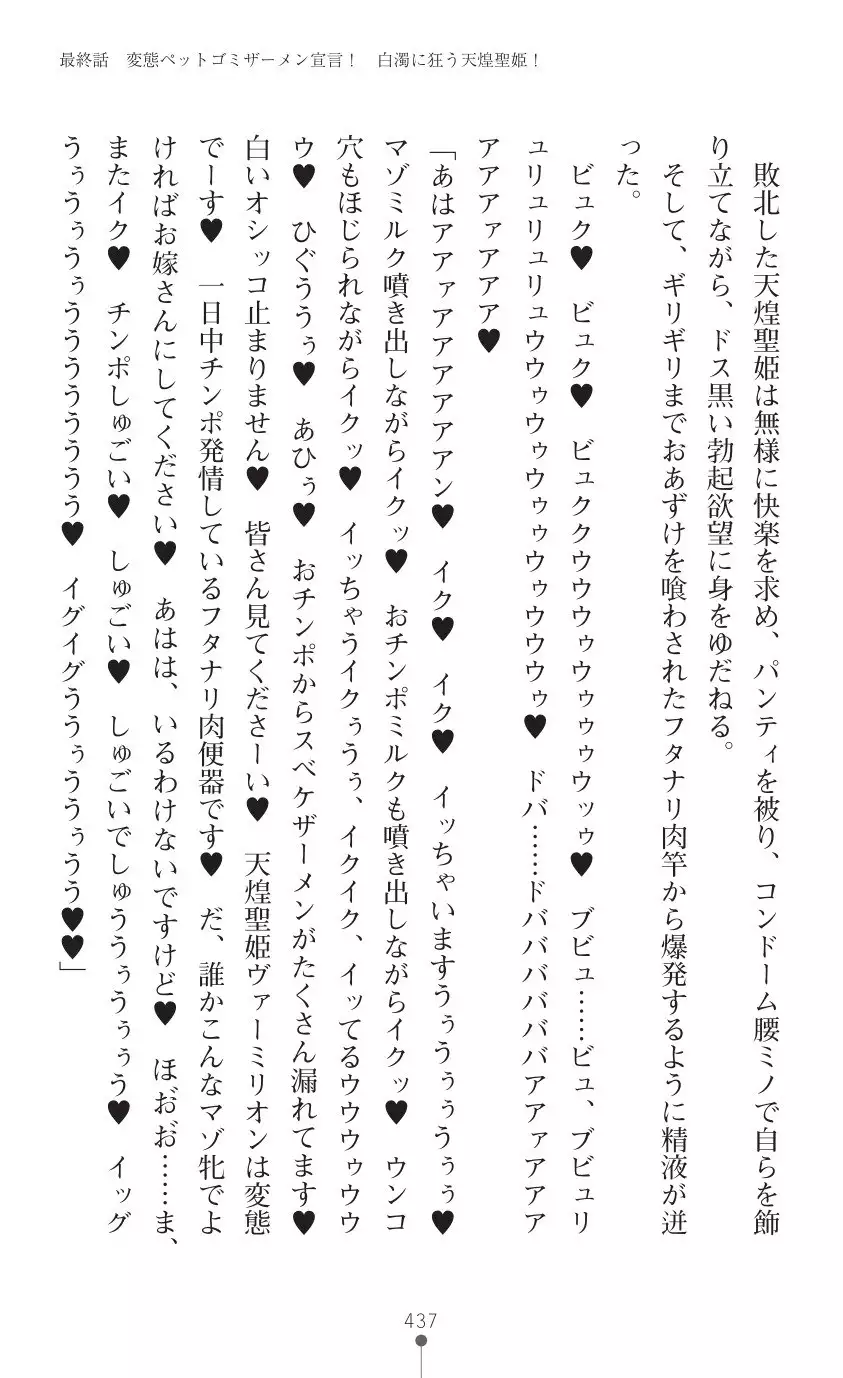 最終話　変態ペットゴミザーメン宣言！　白濁に狂う天煌聖姫！
　敗北した天煌聖姫は無様に快楽を求め、パンティを被り、コンドーム腰ミノで自らを飾
り立てながら、ドス黒い勃起欲望に身をゆだねる。
　そして、ギリギリまでおあずけを喰わされたフタナリ肉竿から爆発するように精液が迸
った。
　ビュク♥　ビュク♥　ビュククウウウゥウゥゥゥウッゥ♥　ブビュ……ビュ、ブビュリ
ュリュリュリュウウゥウゥウゥゥウゥウウウゥ♥　ドバ……ドバババババアアァアアア
アアアァアアア♥
「あはアアァアアアアアアン♥　イク♥　イク♥　イッちゃいますうぅうぅぅうぅぅ♥
マゾミルク噴き出しながらイクッ♥　おチンポミルクも噴き出しながらイクッ♥　ウンコ
穴もほじられながらイクッ♥　イッちゃうイクぅうぅ、イクイク、イッてるウウウゥウウ
ウ♥　ひぐううぅ♥　あひぅ♥　おチンポからスベケザーメンがたくさん漏れてます♥
白いオシッコ止まりません♥　皆さん見てくださーい♥　天煌聖姫ヴァーミリオンは変態
でーす♥　一日中チンポ発情しているフタナリ肉便器です♥　だ、誰かこんなマゾ牝でよ
ければお嫁さんにしてください♥　あはは、いるわけないですけど♥　ほぉ゛ぉ゛……ま、
またイク♥　チンポしゅごい♥　しゅごい♥　しゅごいでしゅううぅうぅぅう♥　イッグ
うぅうぅうぅうううううううう♥　イグイグううぅううぅうう♥♥」
437